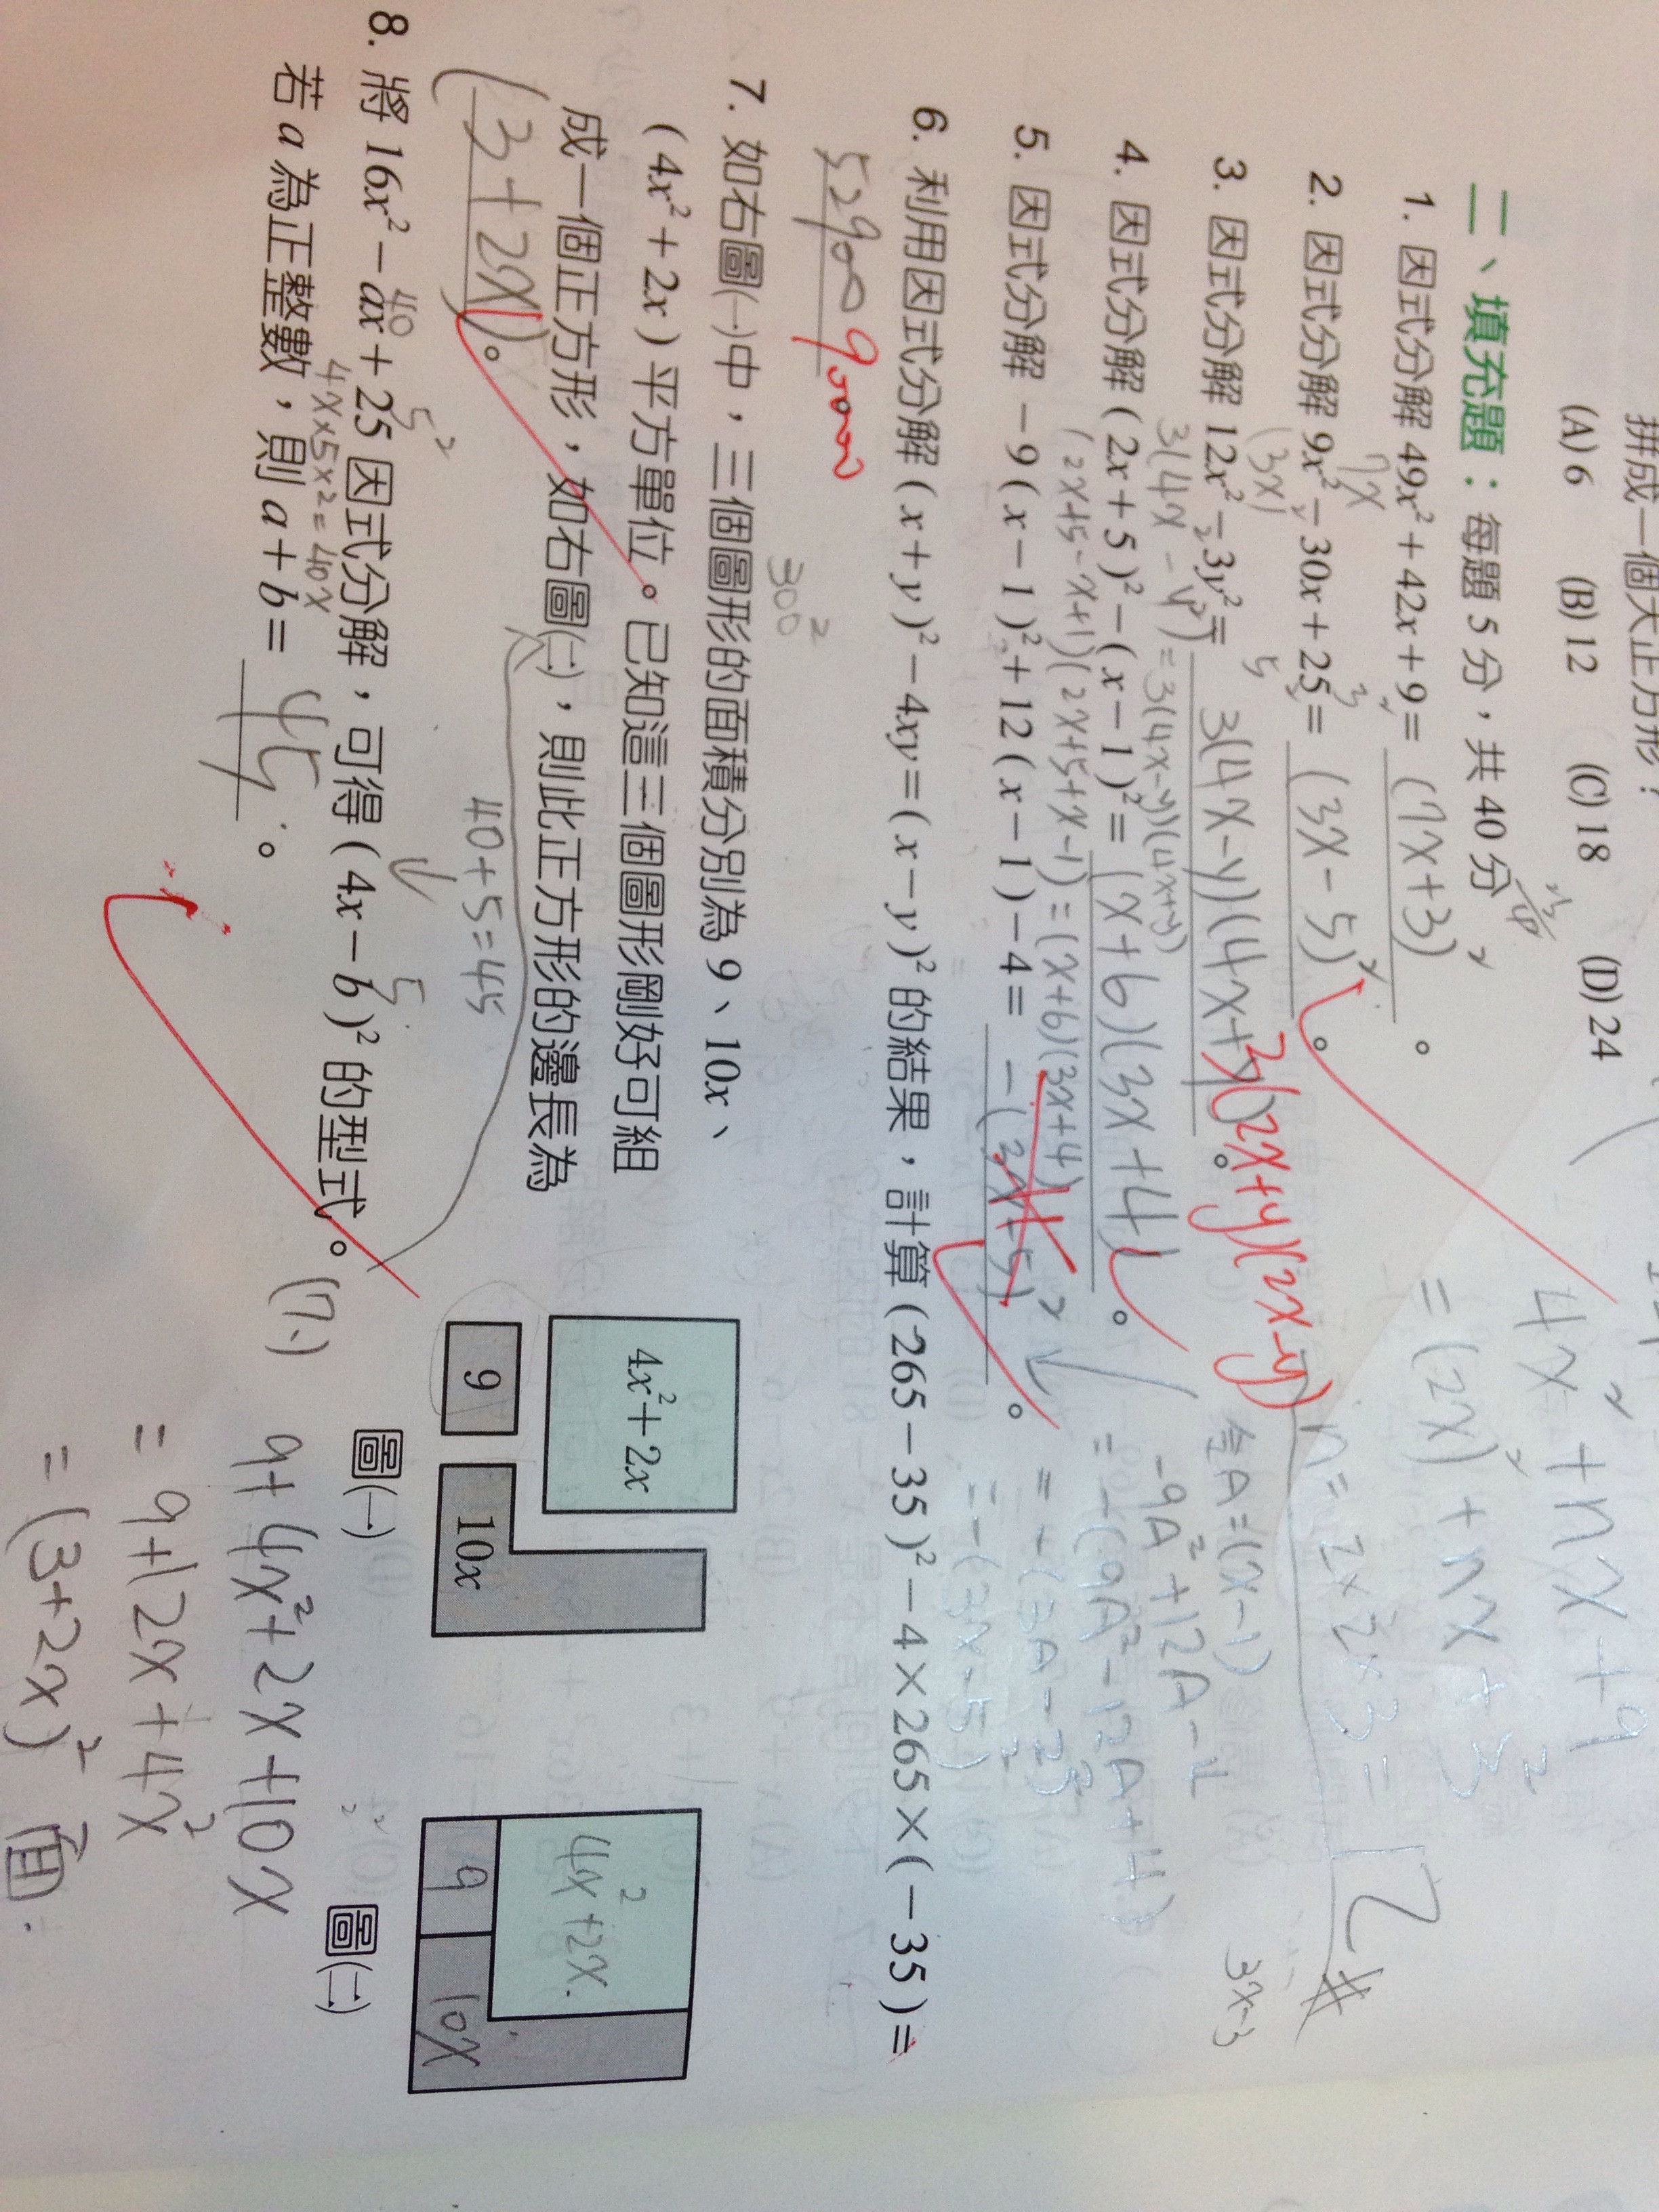 拼成一個大正方形？
(A) 6 (B) 12 (C) 18 (D) 24
二、填充題：每題 5 分，共 40 分
1. 因式分解 49x²+42x+9= (7x+3)² 。
7x
2. 因式分解 9x²-30x+25= (3x-5)² 。
3. 因式分解 12x²-3y²= 3(4x-y)(4x+y) 。
3(2x+y)(2x-y)
3(4x²-y²)=3(4x-y)(4x+y)
4. 因式分解 (2x+5)²-(x-1)²= (x+6)(3x+4) 。
(2x+5-x+1)(2x+5+x-1)=(x+6)(3x+4)
5. 因式分解 -9(x-1)²+12(x-1)-4= -(3x-5)² 。
6. 利用因式分解 (x+y)²-4xy=(x-y)² 的結果，計算 (265-35)²-4×265×(-35)=
52900 90000
300²
7. 如右圖(一)中，三個圖形的面積分別為 9、10x、
(4x²+2x) 平方單位。已知這三個圖形剛好可組
成一個正方形，如右圖(二)，則此正方形的邊長為
(3+2x)。
40+5=45
8. 將 16x²-ax+25 因式分解，可得 (4x-b)² 的型式。
40 5² 5
4x×5×2=40x
若 a 為正整數，則 a+b= 45 。
4x²+nx+9
=(2x)²+nx+3²
n=2×2×3=12
令A=(x-1)
-9A²+12A-4
=-(9A²-12A+4)
=-(3A-2)²
=-(3x-5)²
3x-3
4x²+2x
9
10x
圖(一)
4x²+2x
9
10x
圖(二)
(7.)
9+4x²+2x+10x
=9+12x+4x²
=(3+2x)² 面.